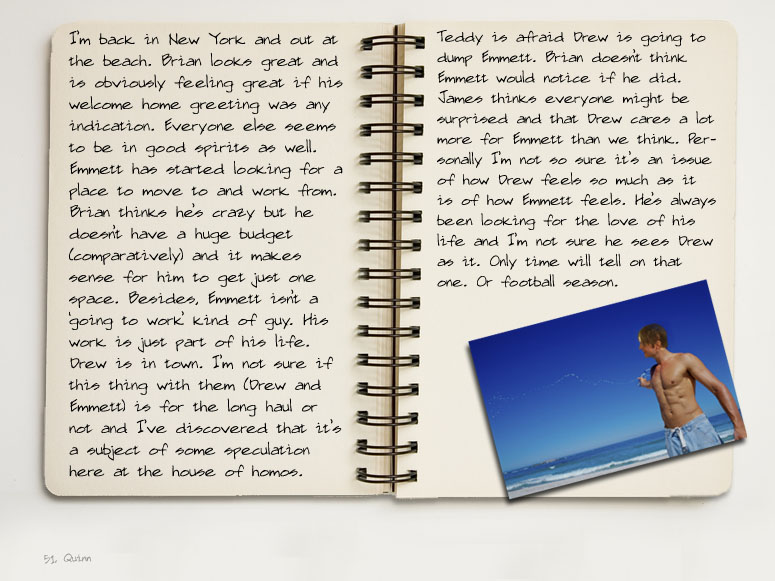 I'm back in New York and out at
the beach. Brian looks great and
is obviously feeling great if his
welcome home greeting was any
indication. Everyone else seems
to be in good spirits as well.
Emmett has started looking for a
place to move to and work from.
Brian thinks he's crazy but he
doesn't have a huge budget
(comparatively) and it makes
sense for him to get just one
space. Besides, Emmett isn't a
'going to work' kind of guy. His
work is just part of his life.
Drew is in town. I'm not sure if
this thing with them (Drew and
Emmett) is for the long haul or
not and I've discovered that it's
a subject of some speculation
here at the house of homos.
Teddy is afraid Drew is going to
dump Emmett. Brian doesn't think
Emmett would notice if he did.
James thinks everyone might be
surprised and that Drew cares a lot
more for Emmett than we think. Per-
sonally I'm not so sure it's an issue
of how Drew feels so much as it
is of how Emmett feels. He's always
been looking for the love of his
life and I'm not sure he sees Drew
as it. Only time will tell on that
one. Or football season.
51, Quinn